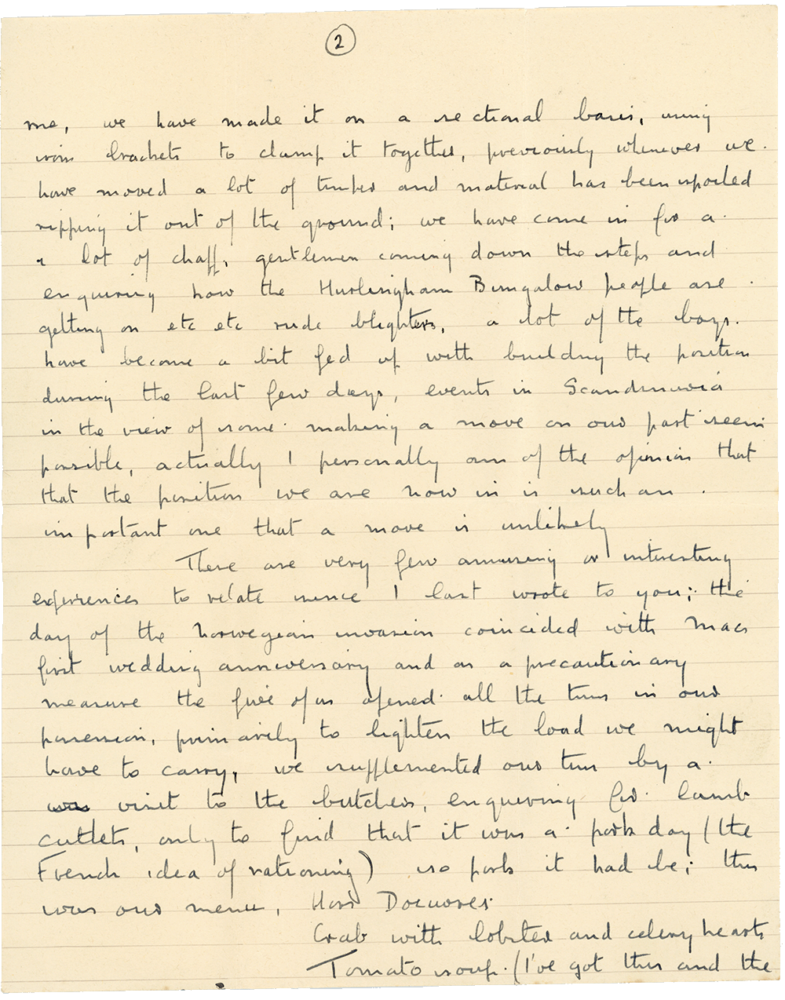 2
me, we have made it on a sectional basis, using
iron brackets to clamp it together, previously whenever we
have moved a lot of timber and material has been spoiled
ripping it out of the ground; we have come in for a
a lot of chaff, gentlemen coming down the steps and
enquiring how the Hurlingham Bungalow people are
getting on etc etc rude blighters, a lot of the boys
have become a bit fed up with building the position
during the last few days, events in Scandinavia
in the view of some making a move on our part seem
possible, actually I personally am of the opinion that
that the position we are now in is such an
important one that a move is unlikely
There are very few amusing or interesting
experiences to relate since I last wrote to you; the
day of the Norwegian invasion coincided with Macs
first wedding anniversary and as a precautionary
measure the five of us opened all the tins in our
possession, primarily to lighten the load we might
have to carry, we supplemented our tins by a
visit to the butchers, enquiring for lamb
cutlets, only to find that it was a pork day (the
French idea of rationing) so pork it had be; this
was our menu, Hors Doeuvres
Crab with lobster and celery hearts
Tomato soup. (I've got this and the